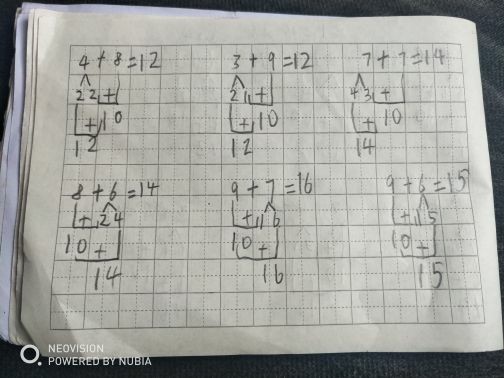 4+8=12 3+9=12 7+7=14
2 2 + 2 1 + 4 3 +
+ 10 + 10 + 10
12 12 14
8+6=14 9+7=16 9+6=15
+ 2 4 + 1 6 + 1 5
10 + 10 + 10 +
14 16 15
NEOVISION
POWERED BY NUBIA